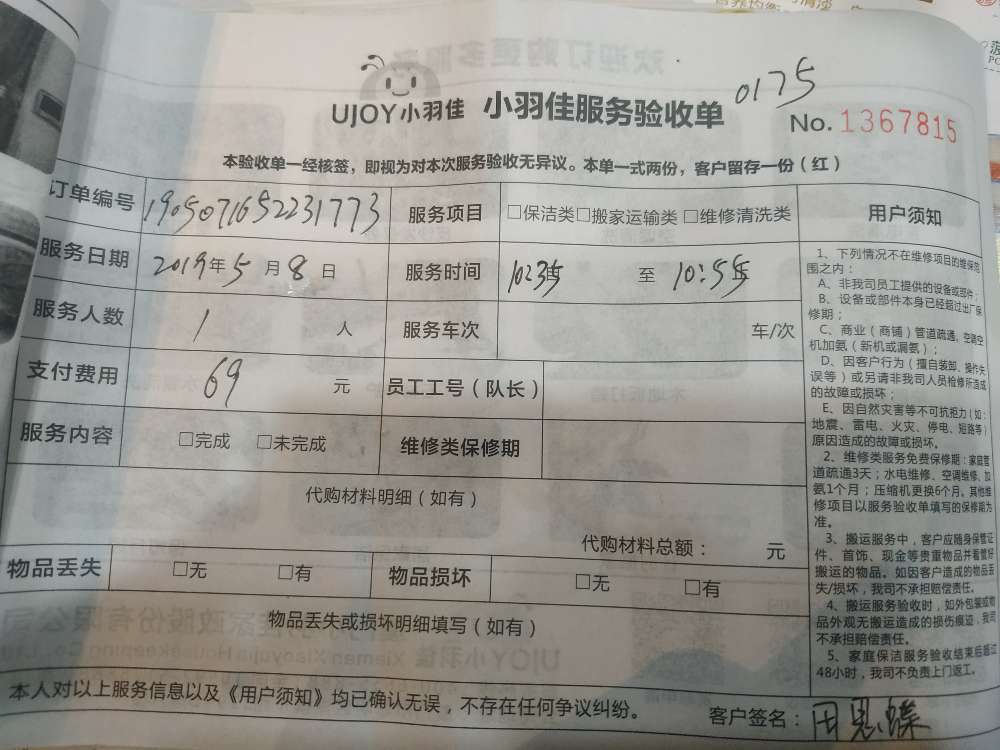 UJOY小羽佳 小羽佳服务验收单 0175
No. 1367815
本验收单一经核签，即视为对本次服务验收无异议。本单一式两份，客户留存一份（红）
订单编号 1905071652231773 服务项目 □保洁类□搬家运输类 □维修清洗类
服务日期 2019年5月8日 服务时间 10:35 至 10:55
服务人数 1 人 服务车次 车/次
支付费用 69 元 员工工号（队长）
服务内容 □完成 □未完成 维修类保修期
代购材料明细（如有）
代购材料总额： 元
物品丢失 □无 □有 物品损坏 □无 □有
物品丢失或损坏明细填写（如有）
本人对以上服务信息以及《用户须知》均已确认无误，不存在任何争议纠纷。
客户签名：
用户须知
1、下列情况不在维修项目的维保范
围之内：
A、非我司员工提供的设备或部件；
B、设备或部件本身已经超过出厂保
修期；
C、商业（商铺）管道疏通，空调空
机加氨（新机或漏氨）；
D、因客户行为（擅自装卸、操作失
误等）或另请非我司人员检修所造成
的故障或损坏；
E、因自然灾害等不可抗拒力（如：
地震、雷电、火灾、停电、短路等）
原因造成的故障或损坏。
2、维修类服务免费保修期：家庭管
道疏通3天；水电维修、空调维修、加
氨1个月；压缩机更换6个月。其他维
修项目以服务验收单填写的保修期为
准。
3、搬运服务中，客户应随身保管证
件、首饰、现金等贵重物品并看管好
搬运的物品。如因客户造成的物品丢
失/损坏，我司不承担赔偿责任。
4、搬运服务验收时，如外包装或物
品外观无搬运造成的损伤痕迹，我司
不承担赔偿责任。
5、家庭保洁服务验收结束后超过
48小时，我司不负责上门返工。